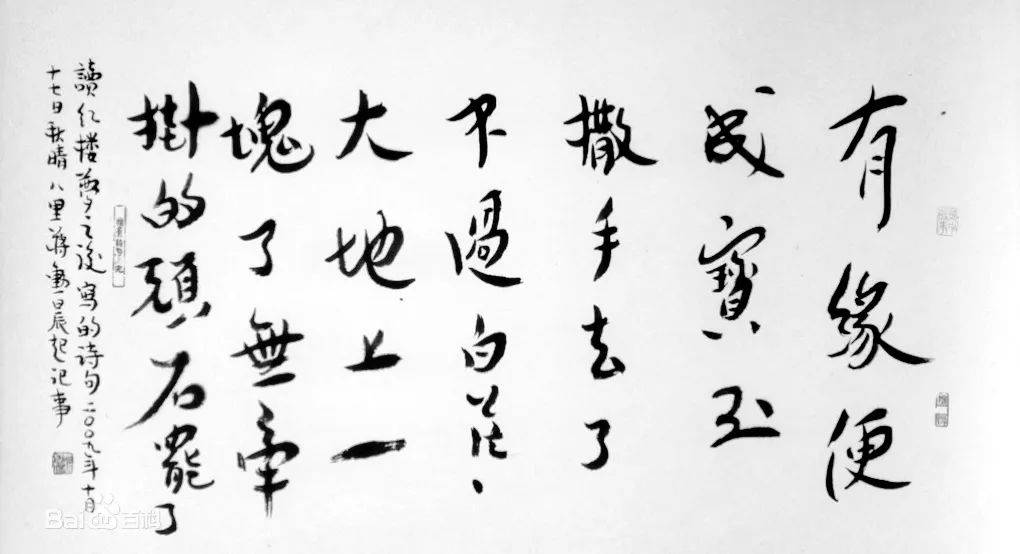 有緣便
成寶玉
撒手去了
不過白茫、
大地上一
塊了無牽
掛的頑石罷了
讀紅楼夢之後寫的詩句二〇〇九年十月
十七日秋晴八里蔣勳晨起記事
Bai百科